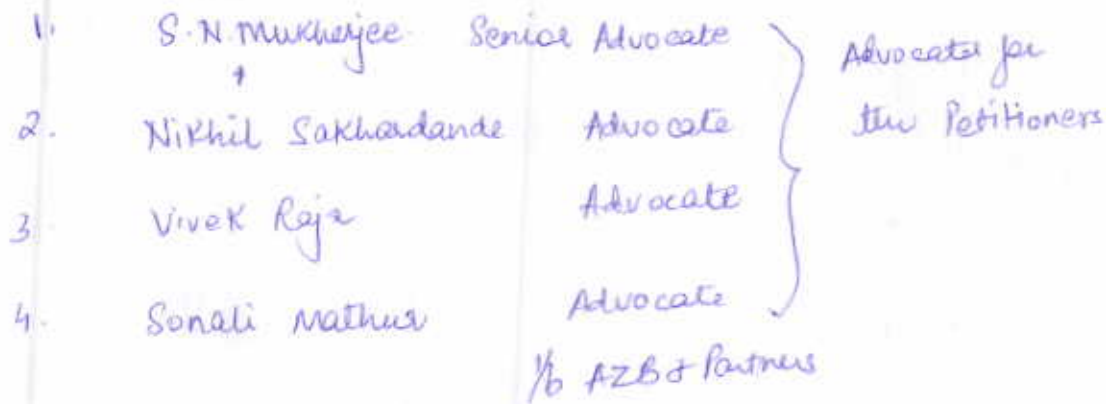 1. S.N. Mukherjee Senior Advocate
2. Nikhil Sakhardande Advocate
3 Vivek Raja Advocate
4. Sonali Mathur Advocate
i/b AZB & Partners
Advocates for
the Petitioners